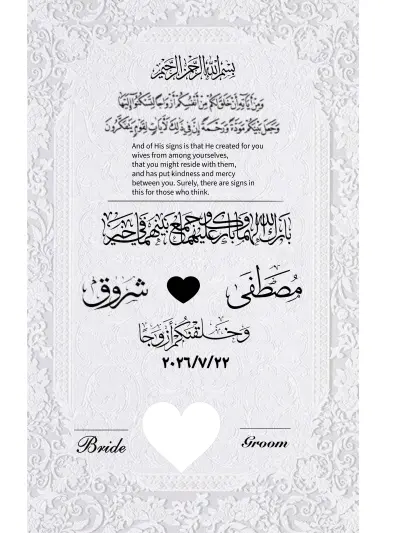 بسم الله الرحمن الرحيم
ومن آياته أن خلق لكم من أنفسكم أزواجا لتسكنوا إليها
وجعل بينكم مودة ورحمة إن في ذلك لآيات لقوم يتفكرون
And of His signs is that He created for you
wives from among yourselves,
that you might reside with them,
and has put kindness and mercy
between you. Surely, there are signs in
this for those who think.
بارك الله لهما وبارك عليهما وجمع بينهما في خير
مصطفى شروق
وخلقنكم أزوجا
٢٠٢٦/٧/٢٢
Bride Groom